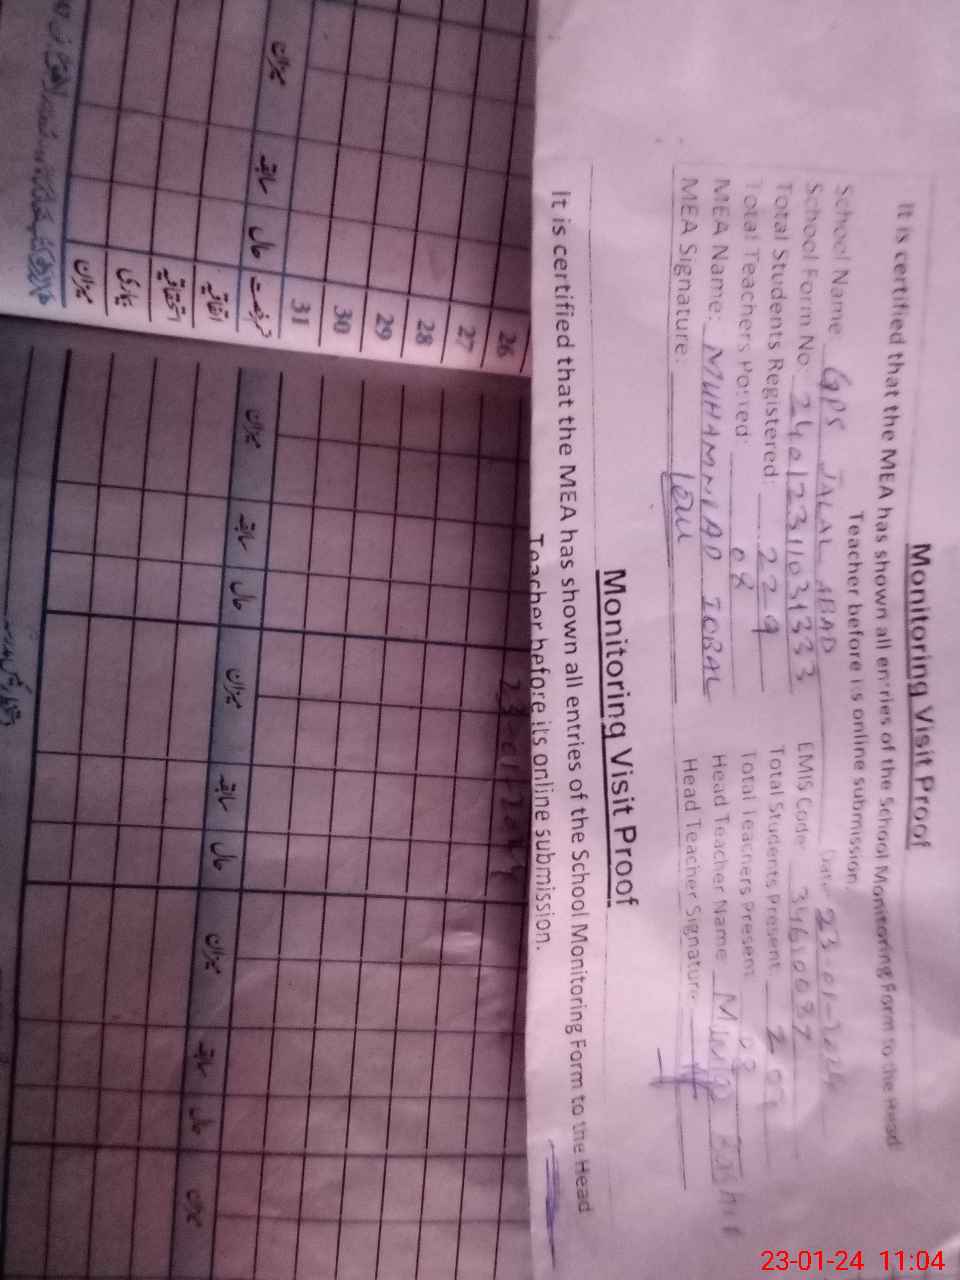 Monitoring Visit Proof
It is certified that the MEA has shown all entries of the School Monitoring Form to the Head
Teacher before its online submission.
Date 23-01-2024
School Name GPS JALAL ABAD
School Form No. EMIS Code:
Total Students Registered: 229 Total Students Present
Total Teachers Posted: 08 Total Teachers Present 08
MEA Name: MUHAMMAD IQBAL Head Teacher Name
MEA Signature: Head Teacher Signature
Monitoring Visit Proof
It is certified that the MEA has shown all entries of the School Monitoring Form to the Head
Teacher before its online submission.
26
27
28
29
30
31
میزان سابقہ حال
اتفاقیہ
استحقاقیہ
بیماری
میزان
میزان سابقہ حال میزان سابقہ حال میزان سابقہ حال میزان
23-01-2024
23-01-24 11:04